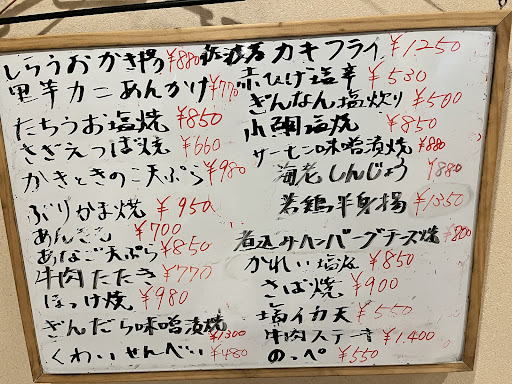 しらうおかき揚 ¥880
里芋カニあんかけ ¥770
たちうお塩焼 ¥850
さざえつぼ焼 ¥660
かきときのこ天ぷら ¥980
ぶりかま焼 ¥950
あんきも ¥700
あなご天ぷら ¥850
牛肉たたき ¥770
ほっけ焼 ¥980
ぎんだら味噌漬焼 ¥1300
くわいせんべい ¥480
佐渡産カキフライ ¥1250
赤ひげ塩辛 ¥530
ぎんなん塩炒り ¥500
小鯛塩焼 ¥850
サーモン味噌漬焼 ¥880
海老しんじょう ¥880
若鶏半身揚 ¥1350
煮込みハンバーグチーズ焼 ¥800
かれい塩焼 ¥850
さば焼 ¥900
塩イカ天 ¥550
牛肉ステーキ ¥1,400
のっぺ ¥550